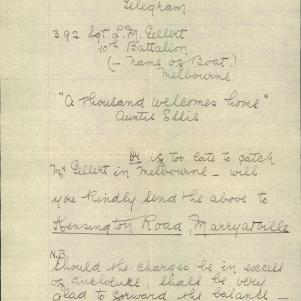 Telegram
392 Sgt L. M. Gellert
10th Battalion
(– name of Boat)
Melbourne
"A thousand welcomes home"
Auntie Ellie
Or is too late to catch
Mr Gellert in Melbourne – will
you kindly send the above to
Kensington Road, Marryatville
N.B.
Should the charges be in excess
of enclosure, shall be very
glad to forward the balance –